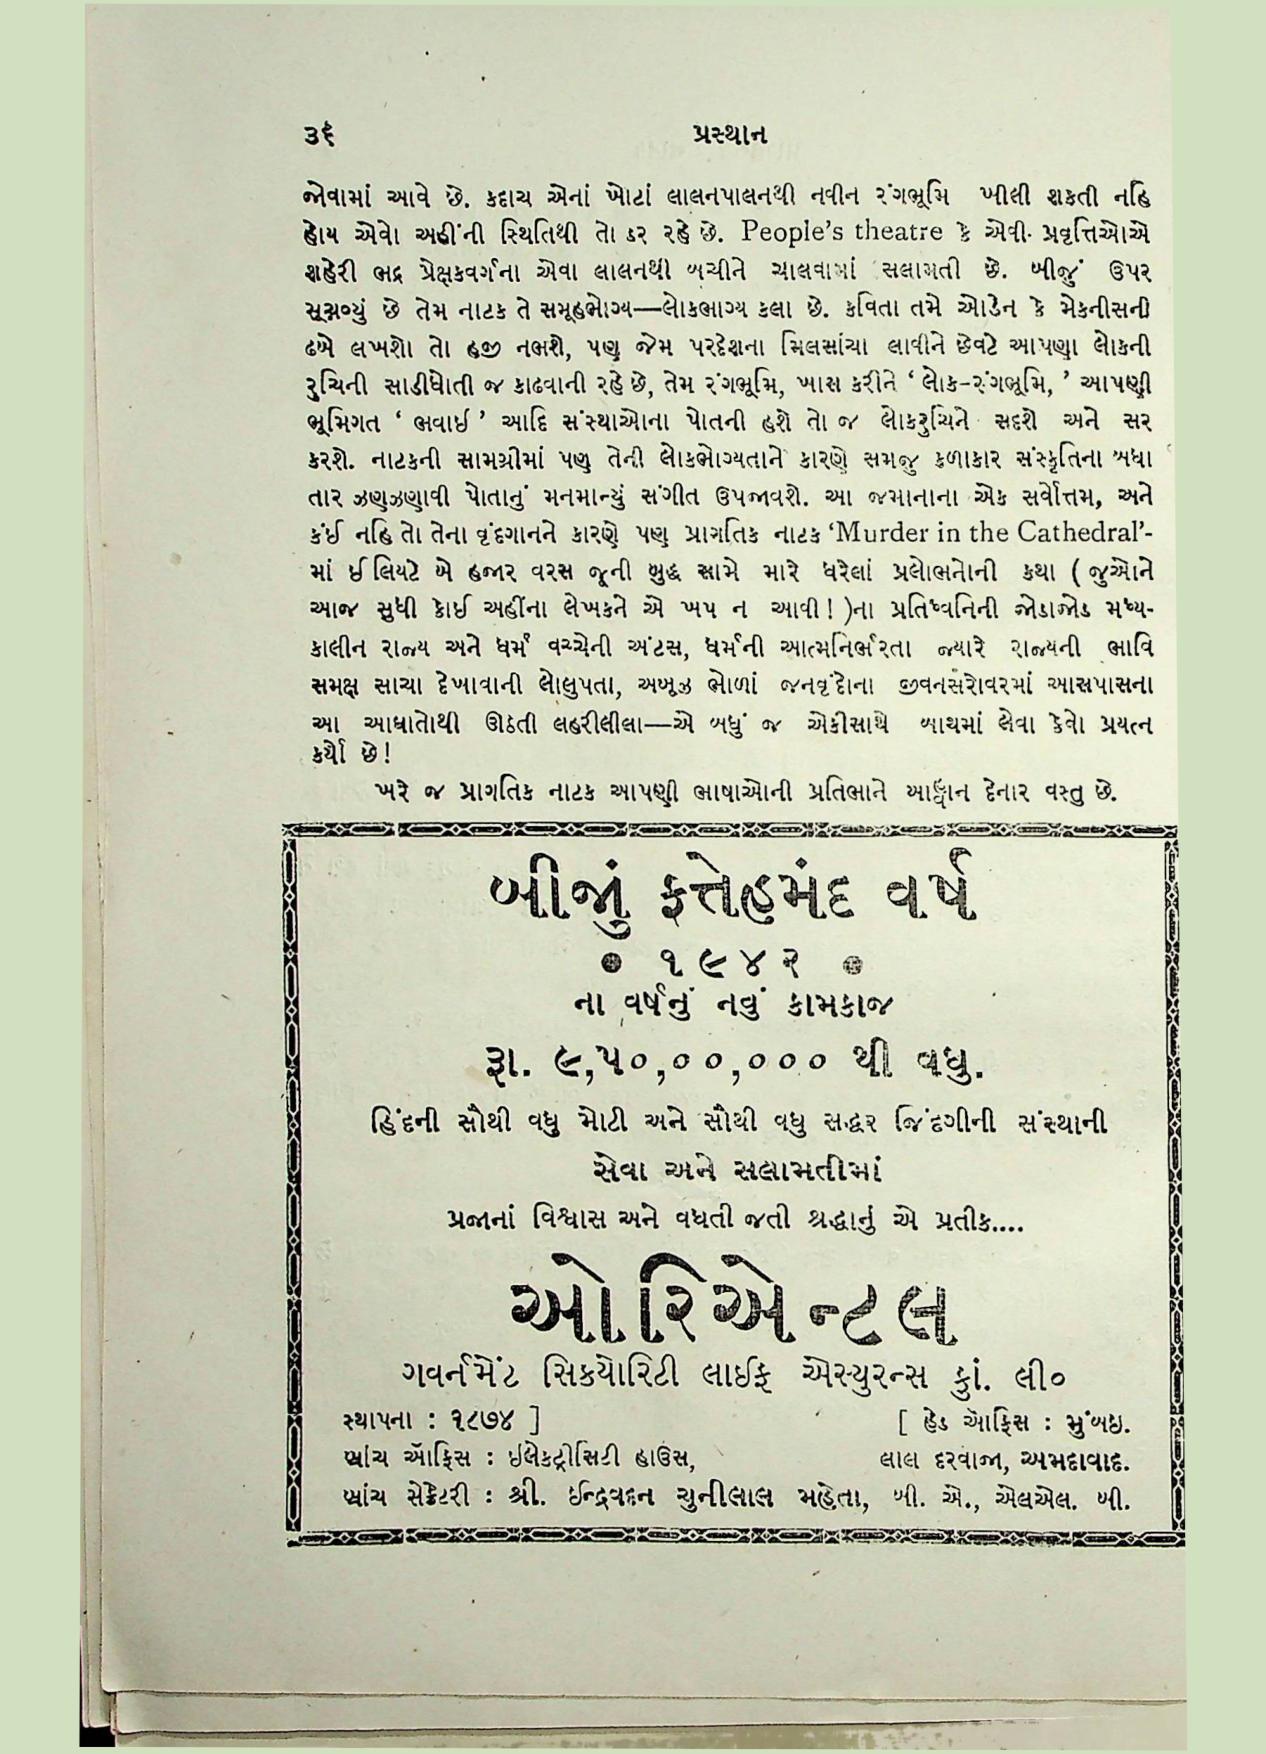 ૩૬ પ્રસ્થાન
જોવામાં આવે છે. કદાચ એનાં ખોટાં લાલનપાલનથી નવીન રંગભૂમિ ખીલી શકતી નહિ
હોય એવો અહીંની સ્થિતિથી તો ડર રહે છે. People's theatre કે એવી પ્રવૃત્તિઓએ
શહેરી ભદ્ર પ્રેક્ષકવર્ગના એવા લાલનથી બચીને ચાલવામાં સલામતી છે. બીજું ઉપર
સૂચવ્યું છે તેમ નાટક તે સમૂહભોગ્ય—લોકભોગ્ય કલા છે. કવિતા તમે ઓડેન કે મેકનીસની
ઢબે લખશો તો હજી નભશે, પણ જેમ પરદેશના મિલસાંચા લાવીને છેવટે આપણા લોકની
રુચિની સાડીધોતી જ કાઢવાની રહે છે, તેમ રંગભૂમિ, ખાસ કરીને ‘ લોક-રંગભૂમિ, ’ આપણી
ભૂમિગત ‘ ભવાઈ ’ આદિ સંસ્થાઓના પોતની હશે તો જ લોકરુચિને સદશે અને સર
કરશે. નાટકની સામગ્રીમાં પણ તેની લોકભોગ્યતાને કારણે સમજુ કળાકાર સંસ્કૃતિના બધા
તાર ઝણઝણાવી પોતાનું મનમાન્યું સંગીત ઉપજાવશે. આ જમાનાના એક સર્વોત્તમ, અને
કંઈ નહિ તો તેના વૃંદગાનને કારણે પણ પ્રાગતિક નાટક ‘Murder in the Cathedral’-
માં ઈલિયટે બે હજાર વરસ જૂની બુદ્ધ સામે મારે ધરેલાં પ્રલોભનોની કથા ( જુઓને
આજ સુધી કોઈ અહીંના લેખકને એ ખપ ન આવી! )ના પ્રતિધ્વનિની જોડાજોડ મધ્ય-
કાલીન રાજ્ય અને ધર્મ વચ્ચેની અંટસ, ધર્મની આત્મનિર્ભરતા જ્યારે રાજ્યની ભાવિ
સમક્ષ સાચા દેખાવાની લોલુપતા, અબૂઝ ભોળાં જનવૃંદોના જીવનસરોવરમાં આસપાસના
આ આઘાતોથી ઊઠતી લહરીલીલા—એ બધું જ એકીસાથે બાથમાં લેવા કેવો પ્રયત્ન
કર્યો છે!
ખરે જ પ્રાગતિક નાટક આપણી ભાષાઓની પ્રતિભાને આહ્વાન દેનાર વસ્તુ છે.
બીજું ફત્તેહમંદ વર્ષ
• ૧૯૪૨ •
ના વર્ષનું નવું કામકાજ
રૂા. ૯,૫૦,૦૦,૦૦૦ થી વધુ.
હિંદની સૌથી વધુ મોટી અને સૌથી વધુ સદ્ધર જિંદગીની સંસ્થાની
સેવા અને સલામતીમાં
પ્રજાનાં વિશ્વાસ અને વધતી જતી શ્રદ્ધાનું એ પ્રતીક....
ઓરિએન્ટલ
ગવર્નમેંટ સિક્યોરિટી લાઈફ એસ્યુરન્સ કુાં. લી૦
સ્થાપના : ૧૮૭૪ ] [ હેડ ઑફિસ : મુંબઇ.
બ્રાંચ ઑફિસ : ઇલેકટ્રીસિટી હાઉસ, લાલ દરવાજા, અમદાવાદ.
બ્રાંચ સેક્રેટરી : શ્રી. ઈન્દ્રવદન ચુનીલાલ મહેતા, બી. એ., એલએલ. બી.